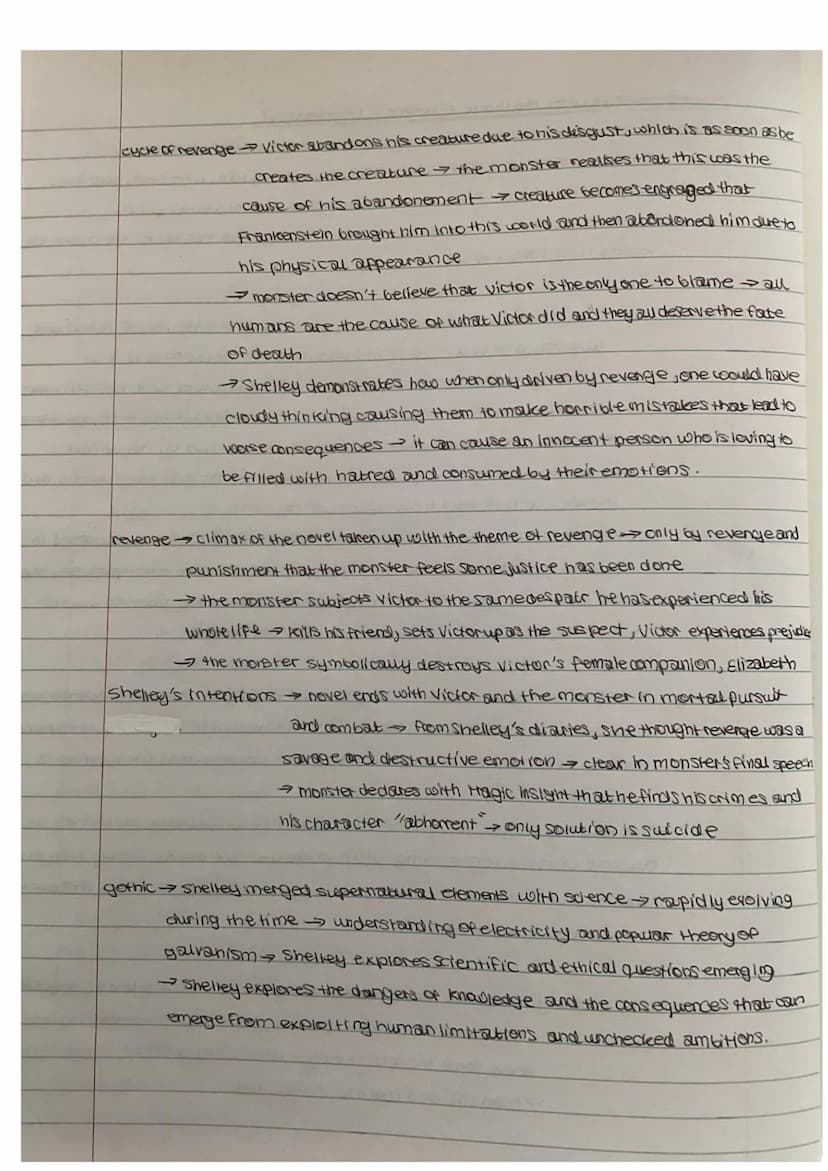 cycle of revenge → Victor abandons his creature due to his disgust, which is as soon as he
creates the creature → the monster realises that this was the
cause of his abandonement → creature becomes engraged that
Frankenstein brought him into this world and then abandoned him due to
his physical appearance
→ monster doesn't believe that victor is the only one to blame → all
humans are the cause of what Victor did and they all deserve the fate
of death
→ Shelley demonstrates how when only driven by revenge, one would have
cloudy thinking causing them to make horrible mistakes that lead to
worse consequences → it can cause an innocent person who is loving to
be filled with hatred and consumed by their emotions.
revenge → climax of the novel taken up with the theme of revenge → only by revenge and
punishment that the monster feels some justice has been done
→ the monster subjects Victor to the same despair he has experienced his
whole life → kills his friend, sets Victor up as the suspect, Victor experiences prejudice
→ the monster symbolically destroys Victor's female companion, Elizabeth
Shelley's intentions → novel ends with Victor and the monster in mortal pursuit
and combat → from Shelley's diaries, she thought revenge was a
savage and destructive emotion → clear in monster's final speech
→ monster declares with tragic insight that he finds his crimes and
his character "abhorrent" → only solution is suicide
gothic → Shelley merged supernatural elements with science → raupidly evolving
during the time → understanding of electricity and popular theory of
galvanism → Shelley explores scientific and ethical questions emerging
→ Shelley explores the dangers of knowledge and the consequences that can
emerge from exploiting human limitations and unchecked ambitions.